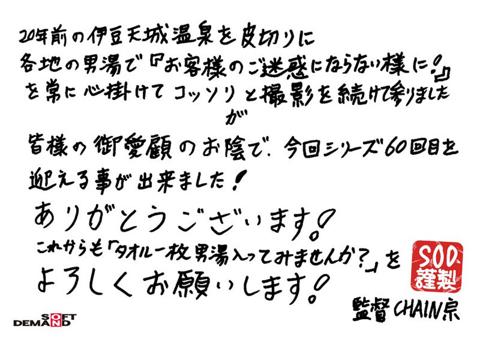 20年前の伊豆天城温泉を皮切りに
各地の男湯で『お客様のご迷惑にならない様に!』
を常に心掛けてコッソリと撮影を続けて参りました
が
皆様の御愛顧のお陰で、今回シリーズ60回目を
迎える事が出来ました!
ありがとうございます!
これからも「タオル一枚男湯入ってみませんか?」を
よろしくお願いします!
S.O.D.
謹製
監督CHAIN宗
SOFT
DEMAND